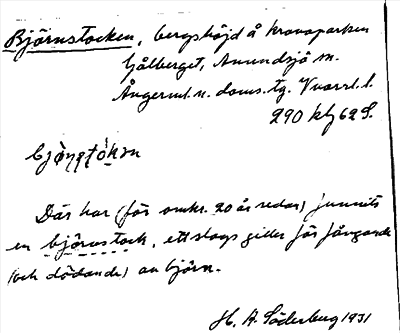 Björnstocken, bergshöjd å kronoparken
Gålberget, Anundsjö sn.
Ångerml. n. doms. tg. Vnorrl. l.
290 klg 62 S.
Där har (för omkr. 20 år sedan) funnits
en björnstock, ett slags giller för fångande
(och dödande) av björn.
H. A. Söderberg 1931